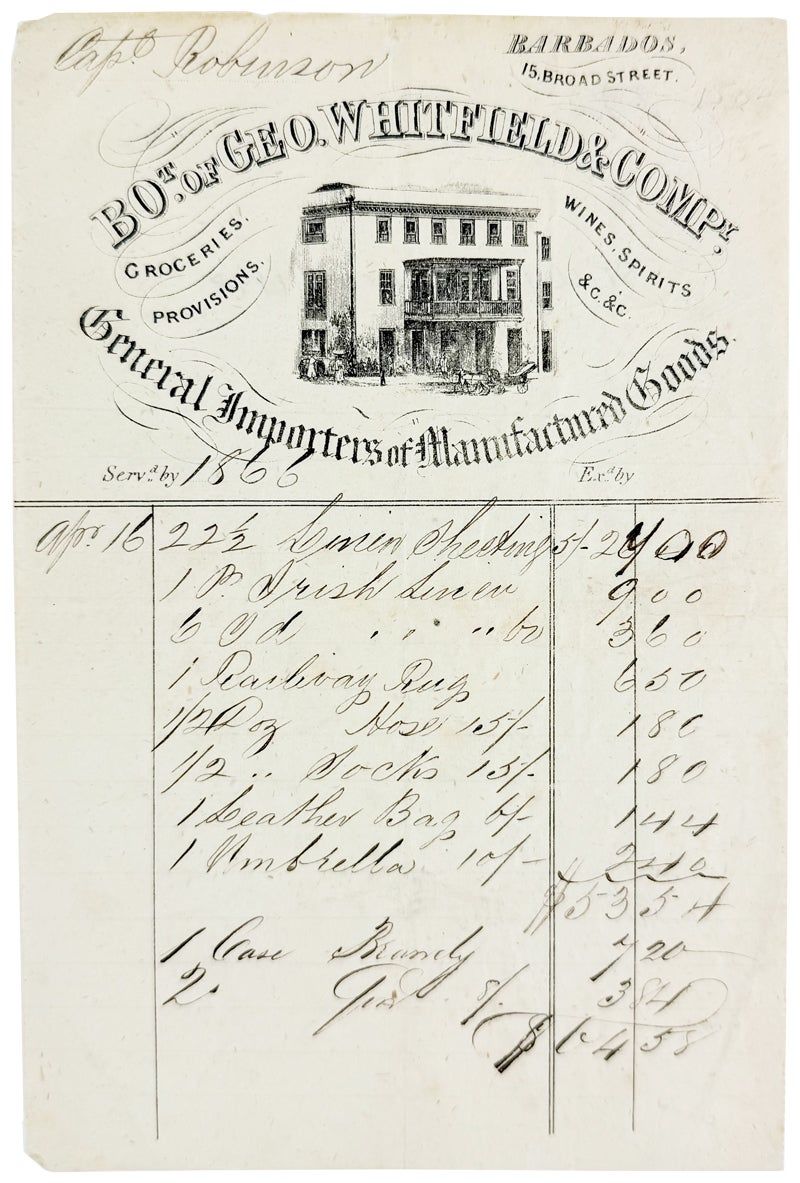 Capt Robinson
BARBADOS,
15, BROAD STREET.
BOT. OF GEO. WHITFIELD & COMPY.
GROCERIES,
PROVISIONS,
WINES, SPIRITS
&C. &C.
General Importers of Manufactured Goods.
Servd. by 1866 Exd. by
Apr 16 22 1/2 Linen Sheeting 5/- 27 00
1 Ps Irish Linen 9 00
6 Yd " " 60 3 60
1 Railway Rug 6 50
1/2 Doz Hose 15/- 1 80
1/2 " Socks 15/- 1 80
1 Leather Bag 6/- 1 44
1 Umbrella 10/- 2 40
$53 54
1 Case Brandy 7 20
2 8/- 3 84
$64 58